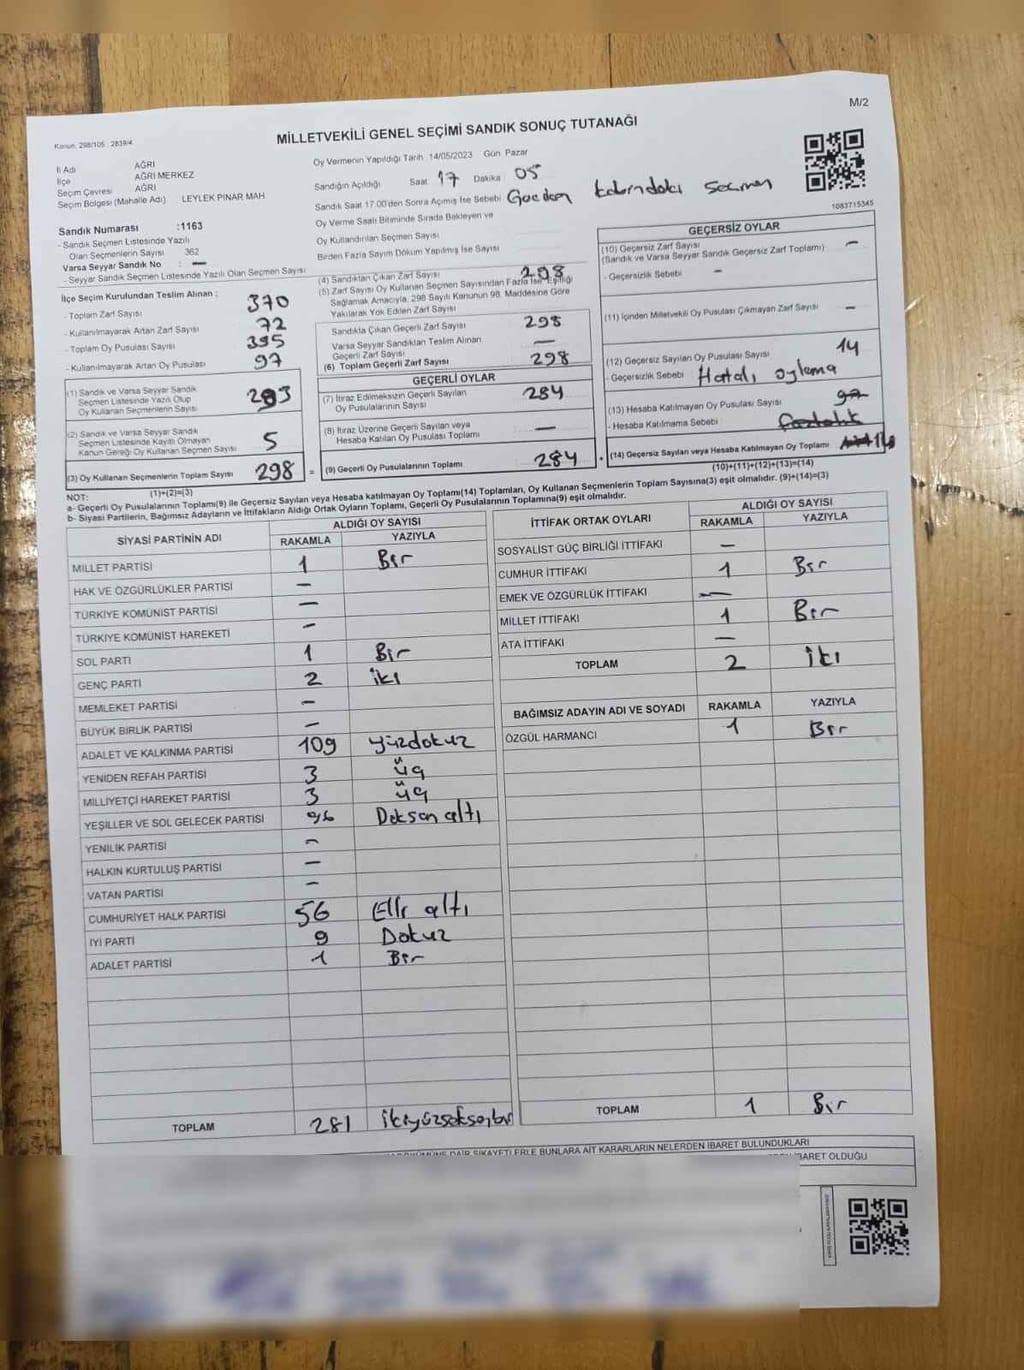 M/2
Kanun. 298/105 : 2839/4
MİLLETVEKİLİ GENEL SEÇİMİ SANDIK SONUÇ TUTANAĞI
İl Adı AĞRI
İlçe AĞRI MERKEZ
Seçim Çevresi AĞRI
Seçim Bölgesi (Mahalle Adı) LEYLEK PINAR MAH
Oy Vermenin Yapıldığı Tarih 14/05/2023 Gün Pazar
Sandığın Açıldığı Saat 17 Dakika 05
Sandık Saat 17.00'den Sonra Açımış İse Sebebi
Oy Verme Saati Bitiminde Sırada Bekleyen ve
Oy Kullandırılan Seçmen Sayısı
Birden Fazla Sayım Döküm Yapılmış İse Sayısı
1083715345
Sandık Numarası :1163
- Sandık Seçmen Listesinde Yazılı
Olan Seçmenlerin Sayısı 362
Varsa Seyyar Sandık No : —
- Seyyar Sandık Seçmen Listesinde Yazılı Olan Seçmen Sayısı
İlçe Seçim Kurulundan Teslim Alınan :
- Toplam Zarf Sayısı 370
- Kullanılmayarak Artan Zarf Sayısı 72
- Toplam Oy Pusulası Sayısı 395
- Kullanılmayarak Artan Oy Pusulası 97
(1) Sandık ve Varsa Seyyar Sandık
Seçmen Listesinde Yazılı Olup
Oy Kullanan Seçmenlerin Sayısı 293
(2) Sandık ve Varsa Seyyar Sandık
Seçmen Listesinde Kayıtlı Olmayan
Kanun Gereği Oy Kullanan Seçmen Sayısı 5
(3) Oy Kullanan Seçmenlerin Toplam Sayısı 298 =
(1)+(2)=(3)
(4) Sandıktan Çıkan Zarf Sayısı 298
(5) Zarf Sayısı Oy Kullanan Seçmen Sayısından Fazla İse, Eşitliği
Sağlamak Amacıyla, 298 Sayılı Kanunun 98. Maddesine Göre
Yakılarak Yok Edilen Zarf Sayısı
Sandıkta Çıkan Geçerli Zarf Sayısı 298
Varsa Seyyar Sandıktan Teslim Alınan
Geçerli Zarf Sayısı —
(6) Toplam Geçerli Zarf Sayısı 298
GEÇERLİ OYLAR
(7) İtiraz Edilmeksizin Geçerli Sayılan
Oy Pusulalarının Sayısı 284
(8) İtiraz Üzerine Geçerli Sayılan veya
Hesaba Katılan Oy Pusulası Toplamı —
(9) Geçerli Oy Pusulalarının Toplamı 284 +
GEÇERSİZ OYLAR
(10) Geçersiz Zarf Sayısı —
(Sandık ve Varsa Seyyar Sandık Geçersiz Zarf Toplamı)
- Geçersizlik Sebebi —
(11) İçinden Milletvekili Oy Pusulası Çıkmayan Zarf Sayısı —
(12) Geçersiz Sayılan Oy Pusulası Sayısı 14
- Geçersizlik Sebebi Hatalı oylama
(13) Hesaba Katılmayan Oy Pusulası Sayısı
- Hesaba Katılmama Sebebi
(14) Geçersiz Sayılan veya Hesaba Katılmayan Oy Toplamı 14
(10)+(11)+(12)+(13)=(14)
NOT:
a- Geçerli Oy Pusulalarının Toplamı(9) ile Geçersiz Sayılan veya Hesaba katılmayan Oy Toplamı(14) Toplamları, Oy Kullanan Seçmenlerin Toplam Sayısına(3) eşit olmalıdır. (9)+(14)=(3)
b- Siyasi Partilerin, Bağımsız Adayların ve İttifakların Aldığı Ortak Oyların Toplamı, Geçerli Oy Pusulalarının Toplamına(9) eşit olmalıdır.
SİYASİ PARTİNİN ADI ALDIĞI OY SAYISI
RAKAMLA YAZIYLA
MİLLET PARTİSİ 1 Bir
HAK VE ÖZGÜRLÜKLER PARTİSİ —
TÜRKİYE KOMÜNİST PARTİSİ —
TÜRKİYE KOMÜNİST HAREKETİ —
SOL PARTİ 1 Bir
GENÇ PARTİ 2 iki
MEMLEKET PARTİSİ —
BÜYÜK BİRLİK PARTİSİ —
ADALET VE KALKINMA PARTİSİ 109 yüzdokuz
YENİDEN REFAH PARTİSİ 3 üç
MİLLİYETÇİ HAREKET PARTİSİ 3 üç
YEŞİLLER VE SOL GELECEK PARTİSİ 96 Doksan altı
YENİLİK PARTİSİ —
HALKIN KURTULUŞ PARTİSİ —
VATAN PARTİSİ —
CUMHURİYET HALK PARTİSİ 56 Elli altı
İYİ PARTİ 9 Dokuz
ADALET PARTİSİ 1 Bir
TOPLAM 281 ikiyüzseksenbir
İTTİFAK ORTAK OYLARI ALDIĞI OY SAYISI
RAKAMLA YAZIYLA
SOSYALİST GÜÇ BİRLİĞİ İTTİFAKI —
CUMHUR İTTİFAKI 1 Bir
EMEK VE ÖZGÜRLÜK İTTİFAKI —
MİLLET İTTİFAKI 1 Bir
ATA İTTİFAKI —
TOPLAM 2 iki
BAĞIMSIZ ADAYIN ADI VE SOYADI RAKAMLA YAZIYLA
ÖZGÜL HARMANCI 1 Bir
TOPLAM 1 Bir
DAİR ŞİKAYETLERLE BUNLARA AİT KARARLARIN NELERDEN İBARET BULUNDUKLARI
İBARET OLDUĞU